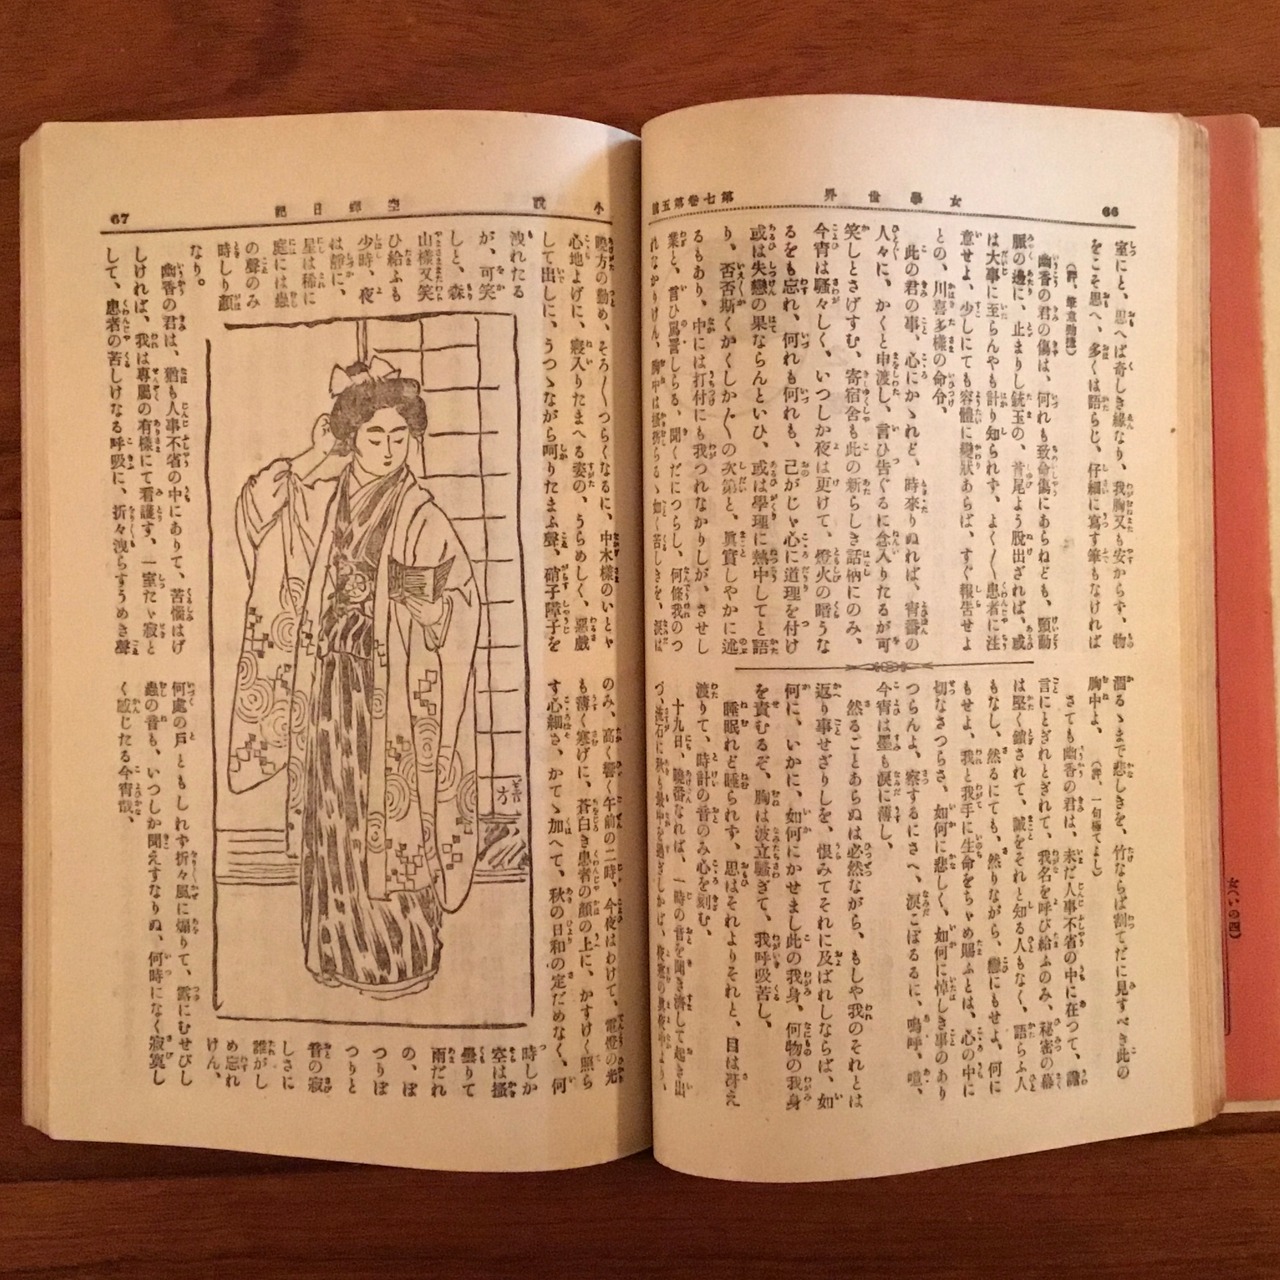 66 女學世界 第七卷第五號
室にと、思へば奇しき緣なり、我胸又も安からず、物
をこそ思へ、多くは語らじ、仔細に寫す筆もなければ
（評、筆意勁捷）
幽香の君の傷は、何れも致命傷にあらねども、頸動
脈の邊に、止まりし銃玉の、首尾よう脫出ざれば、或
は大事に至らんやも計り知られず、よく〱患者に注
意せよ、少しにても容體に變狀あらば、すぐ報告せよ
との、川喜多樣の命令、
此の君の事、心にかゝれど、時來りぬれば、宵番の
人々に、かくと申渡し、言ひ告ぐるに念入りたるが可
笑しとさげすむ、寄宿舍も此の新らしき話柄にのみ、
今宵は騷々しく、いつしか夜は更けて、燈火の暗うな
るをも忘れ、何れも何れも、己がじゝ心に道理を付け
或は失戀の果ならんといひ、或は學理に熱中してと語
り、否否斯くかくしか〲の次第と、眞實しやかに述
るもあり、中には打付にも我つれなかりしが、させし
業と、言ひ罵詈しらる、聞くだにつらし、何條我のつ
れなかりけん、胸中は搔挘らるゝ如く苦しきを、淚は
溜るゝまで悲しきを、竹ならば割てだに見すべき此の
胸中よ、（評、一句極てよし）
さても幽香の君は、未だ人事不省の中に在つて、譫
言にとぎれとぎれて、我名を呼び給ふのみ、秘密の幕
は堅く鎖されて、誠をそれと知る人もなく、語らふ人
もなし、然るにても、然りながら、戀にもせよ、何に
もせよ、我と我手に生命をちゃめ賜ふとは、心の中に
切なさつらさ、如何に悲しく、如何に悼しき事のあり
つらんよ、察するにさへ、淚こぼるるに、嗚呼、噫、
今宵は墨も淚に薄し、
然るごとあらぬは必然ながら、もしや我のそれとは
返り事せざりしを、恨みてそれに及ばれしならば、如
何に、いかに、如何にかせまし此の我身、何物の我身
を責むるぞ、胸は波立騷ぎて、我呼吸苦し、
睡眠れど睡られず、思はそれよりそれと、目は冴え
渡りて、時計の音のみ心を刻む、
十九日、曉番なれば、一時の音を聞き濟して起き出
小說 空蟬日記 67
曉方の勤め、そろ〱つらくなるに、中木樣のいとゞ
心地よげに、寢入りたまへる姿の、うらめしく、惡戲
して出しに、うつゝながら呵りたまふ聲、硝子障子を
洩れたる
が、可笑
しと、森
山樣又笑
ひ給ふも
少時、夜
は靜に、
星は稀に
庭には蟲
の聲のみ
時しり顏
なり。
幽香の君は、猶も人事不省の中にありて、苦惱はげ
しければ、我は專屬の有樣にて看護す、一室たゞ寂と
して、患者の苦しげなる呼吸に、折々洩らすうめき聲
のみ、高く響く午前の二時、今夜はわけて、電燈の光
も薄く寒げに、蒼白き患者の顏の上に、かすけく照ら
す心細さ、かてゝ加へて、秋の日和の定だめなく、何
時しか
空は搔
曇りて
雨だれ
の、ぽ
つりぽ
つりと
音の寂
しさに
誰がし
め忘れ
けん、
何處の戶ともしれず折々風に煽りて、露にむせびし
蟲の音も、いつしか聞えずなりぬ、何時になく寂寞し
く感じたる今宵哉、
女（いの四）